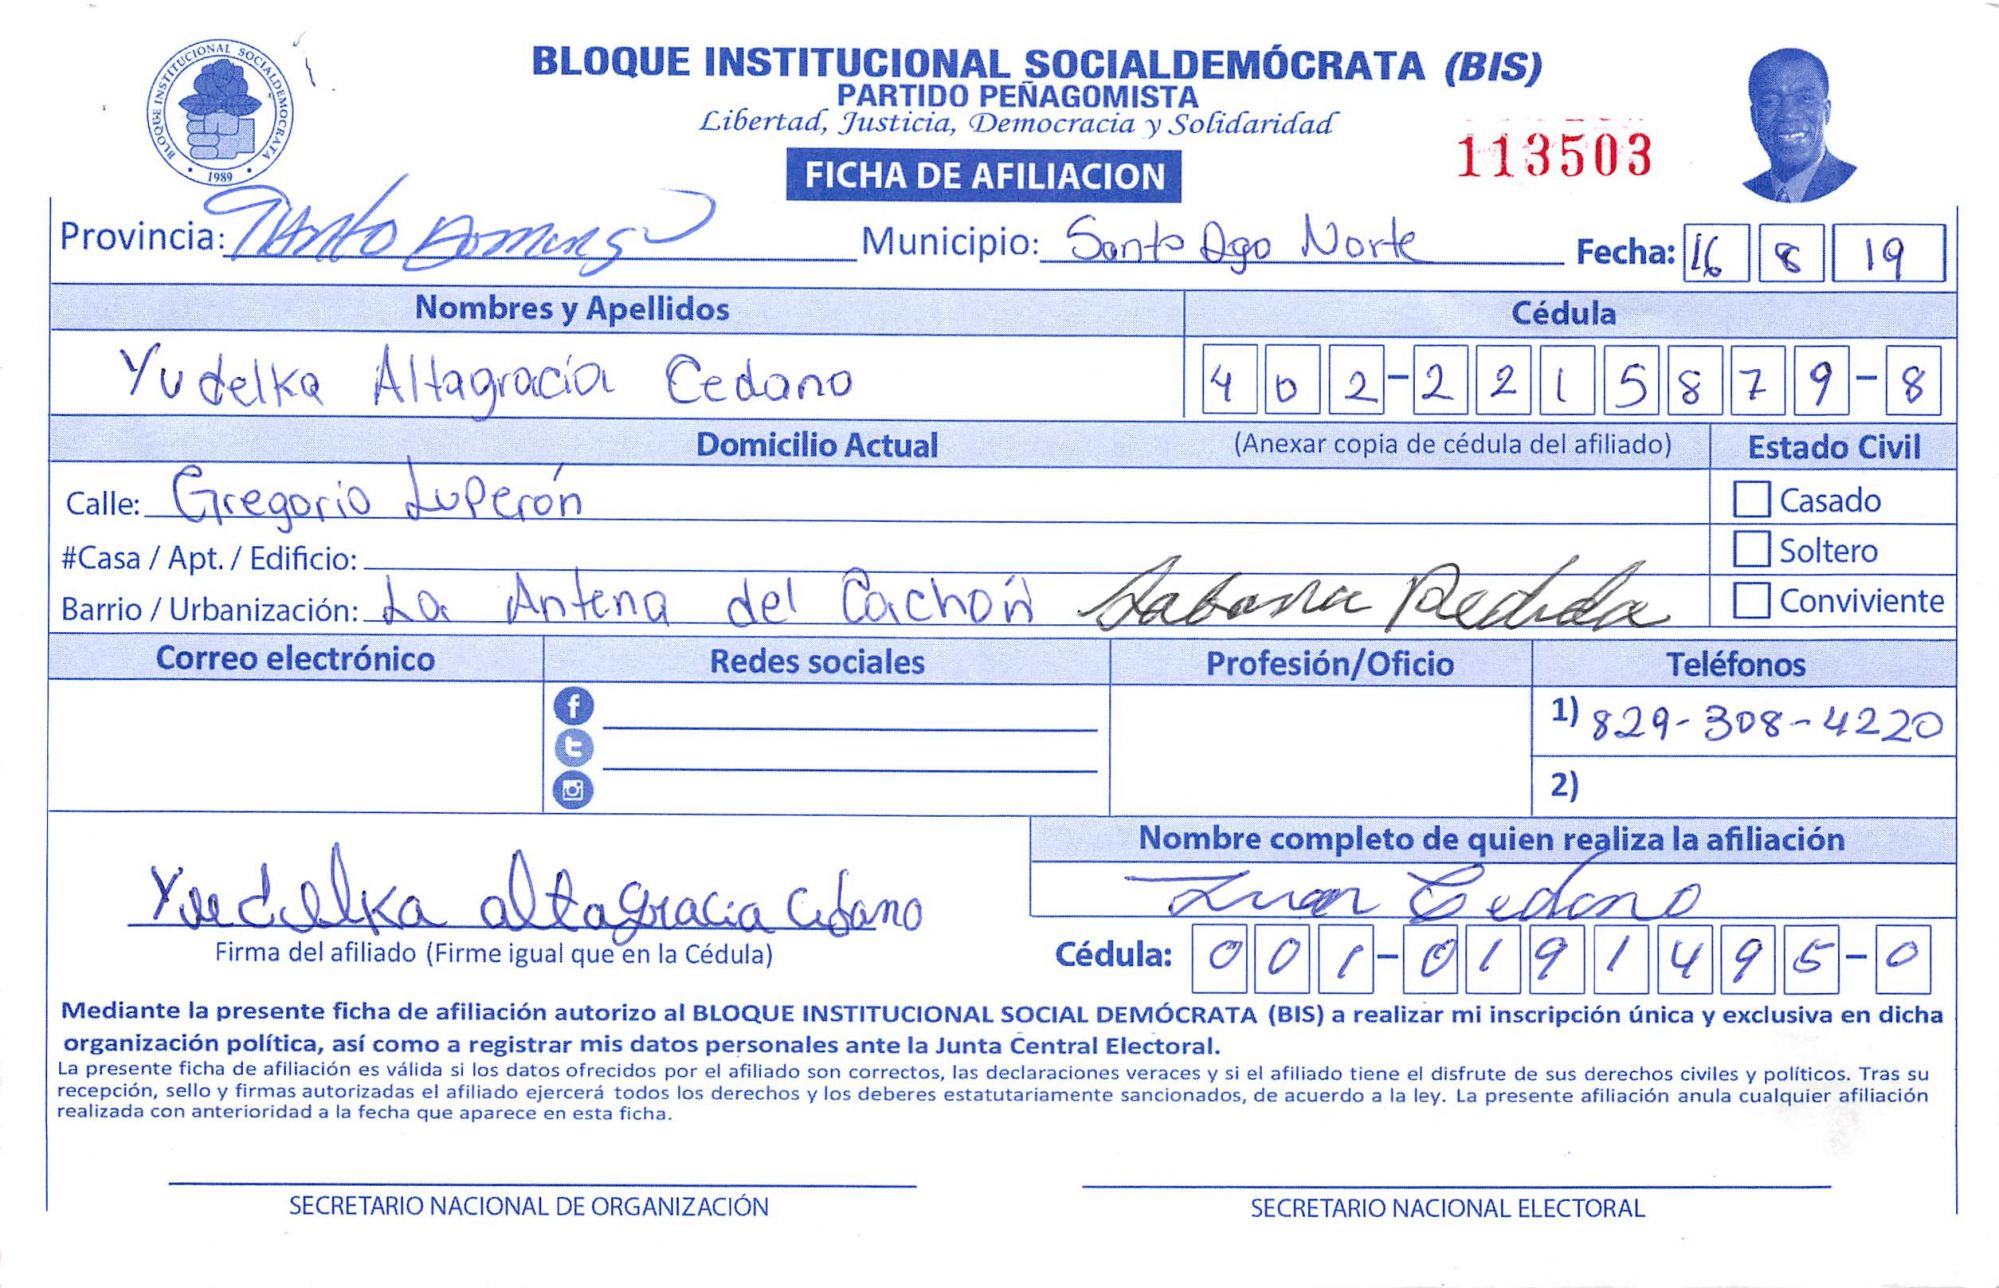 BLOQUE INSTITUCIONAL SOCIALDEMÓCRATA
1989
BLOQUE INSTITUCIONAL SOCIALDEMÓCRATA (BIS)
PARTIDO PEÑAGOMISTA
Libertad, Justicia, Democracia y Solidaridad
113503
FICHA DE AFILIACION
Provincia: Santo Domingo Municipio: Santo Dgo Norte Fecha: 16 8 19
Nombres y Apellidos Cédula
Yudelka Altagracia Cedano 402-2215879-8
Domicilio Actual (Anexar copia de cédula del afiliado) Estado Civil
Calle: Gregorio Luperón Casado
#Casa / Apt. / Edificio: Soltero
Barrio / Urbanización: La Antena del Cachón Sabana Perdida Conviviente
Correo electrónico Redes sociales Profesión/Oficio Teléfonos
1) 829-308-4220
2)
Nombre completo de quien realiza la afiliación
Yudelka altagracia Cedano Juan Cedano
Firma del afiliado (Firme igual que en la Cédula) Cédula: 001-0191495-0
Mediante la presente ficha de afiliación autorizo al BLOQUE INSTITUCIONAL SOCIAL DEMÓCRATA (BIS) a realizar mi inscripción única y exclusiva en dicha
organización política, así como a registrar mis datos personales ante la Junta Central Electoral.
La presente ficha de afiliación es válida si los datos ofrecidos por el afiliado son correctos, las declaraciones veraces y si el afiliado tiene el disfrute de sus derechos civiles y políticos. Tras su
recepción, sello y firmas autorizadas el afiliado ejercerá todos los derechos y los deberes estatutariamente sancionados, de acuerdo a la ley. La presente afiliación anula cualquier afiliación
realizada con anterioridad a la fecha que aparece en esta ficha.
SECRETARIO NACIONAL DE ORGANIZACIÓN SECRETARIO NACIONAL ELECTORAL